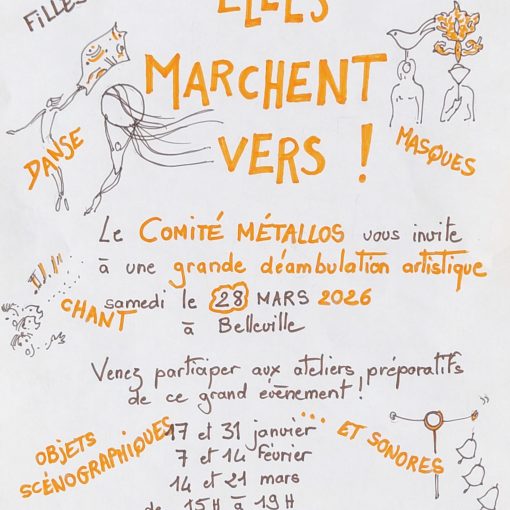 FILLES
ELLES
MARCHENT
VERS !
DANSE
MASQUES
Le COMITÉ MÉTALLOS vous invite
à une grande déambulation artistique
samedi le 28 MARS 2026
à Belleville
CHANT
Venez participer aux ateliers préparatifs
de ce grand évènement !
OBJETS
SCÉNOGRAPHIQUES
... ET SONORES
17 et 31 janvier
7 et 14 Février
14 et 21 mars
de 15H à 19H